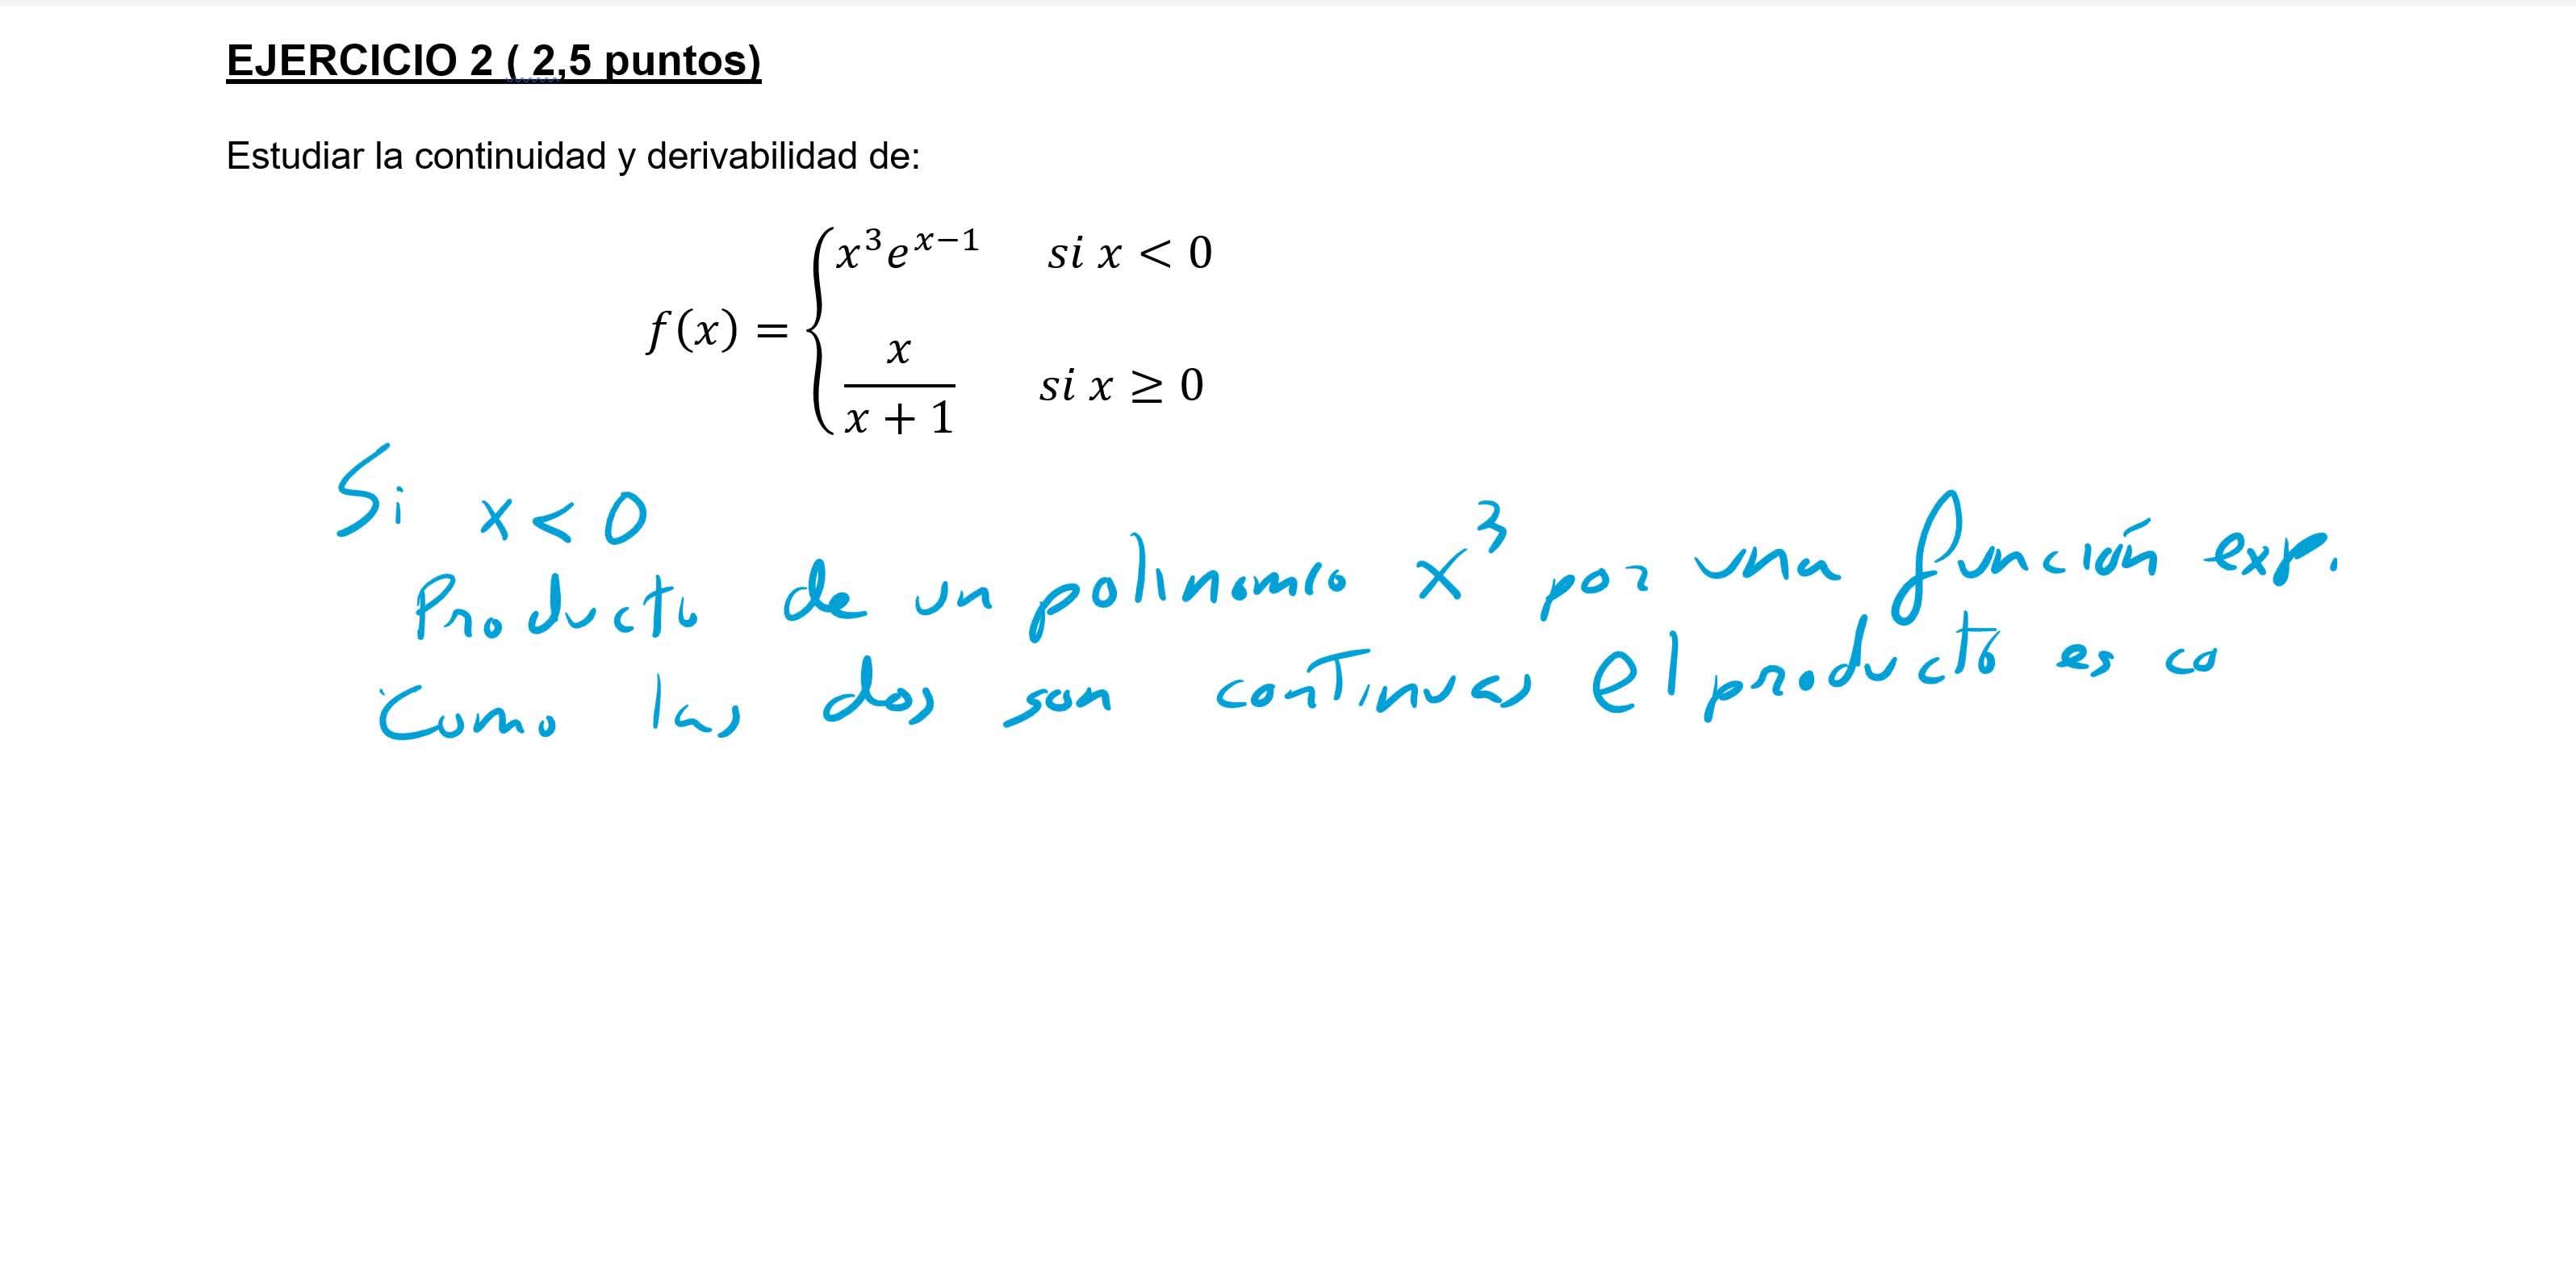 EJERCICIO 2 ( 2,5 puntos)
Estudiar la continuidad y derivabilidad de:
f(x) = { x³eˣ⁻¹ si x < 0
x/(x + 1) si x ≥ 0
Si x < 0
Producto de un polinomio x³ por una función exp.
Como las dos son continuas el producto es co